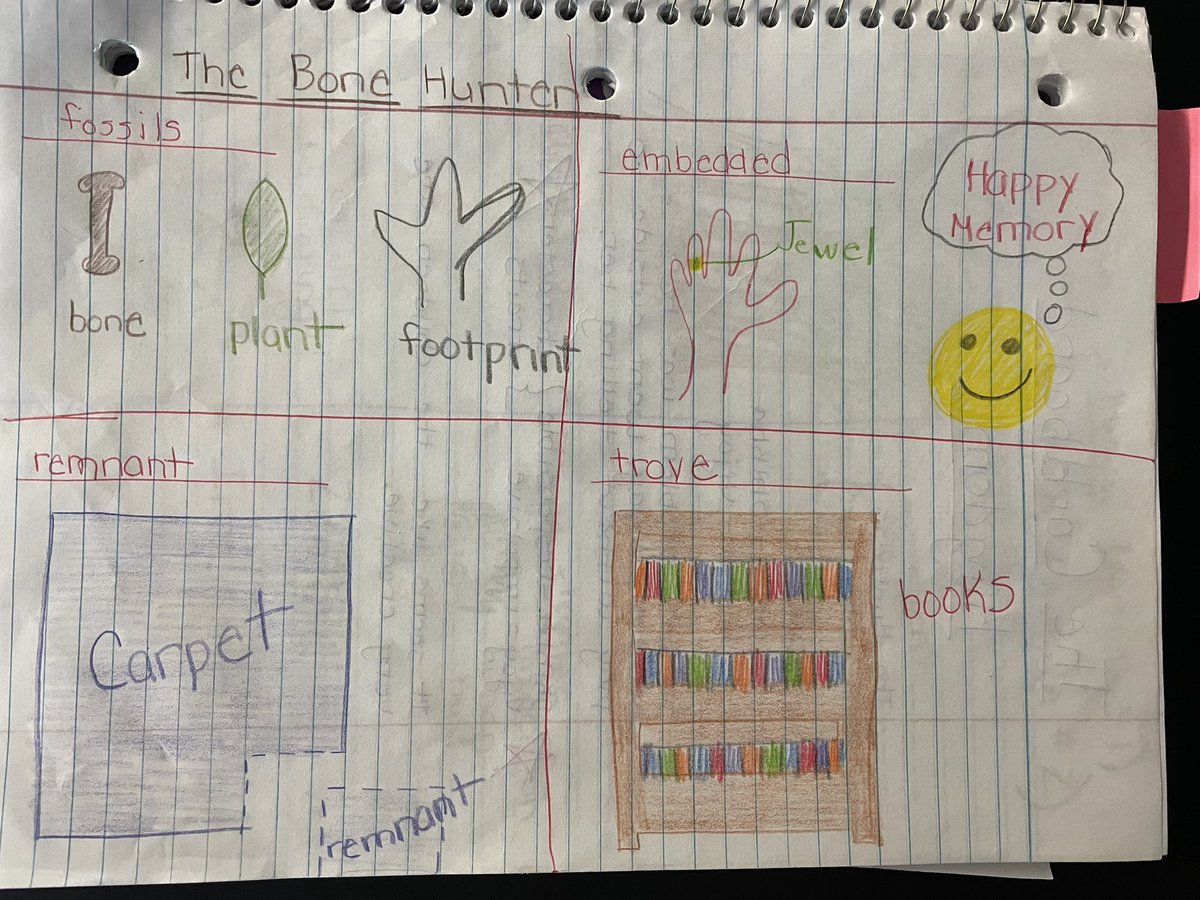 The Bone Hunter
fossils
bone
plant
footprint
embedded
Jewel
Happy
Memory
remnant
Carpet
remnant
trove
books